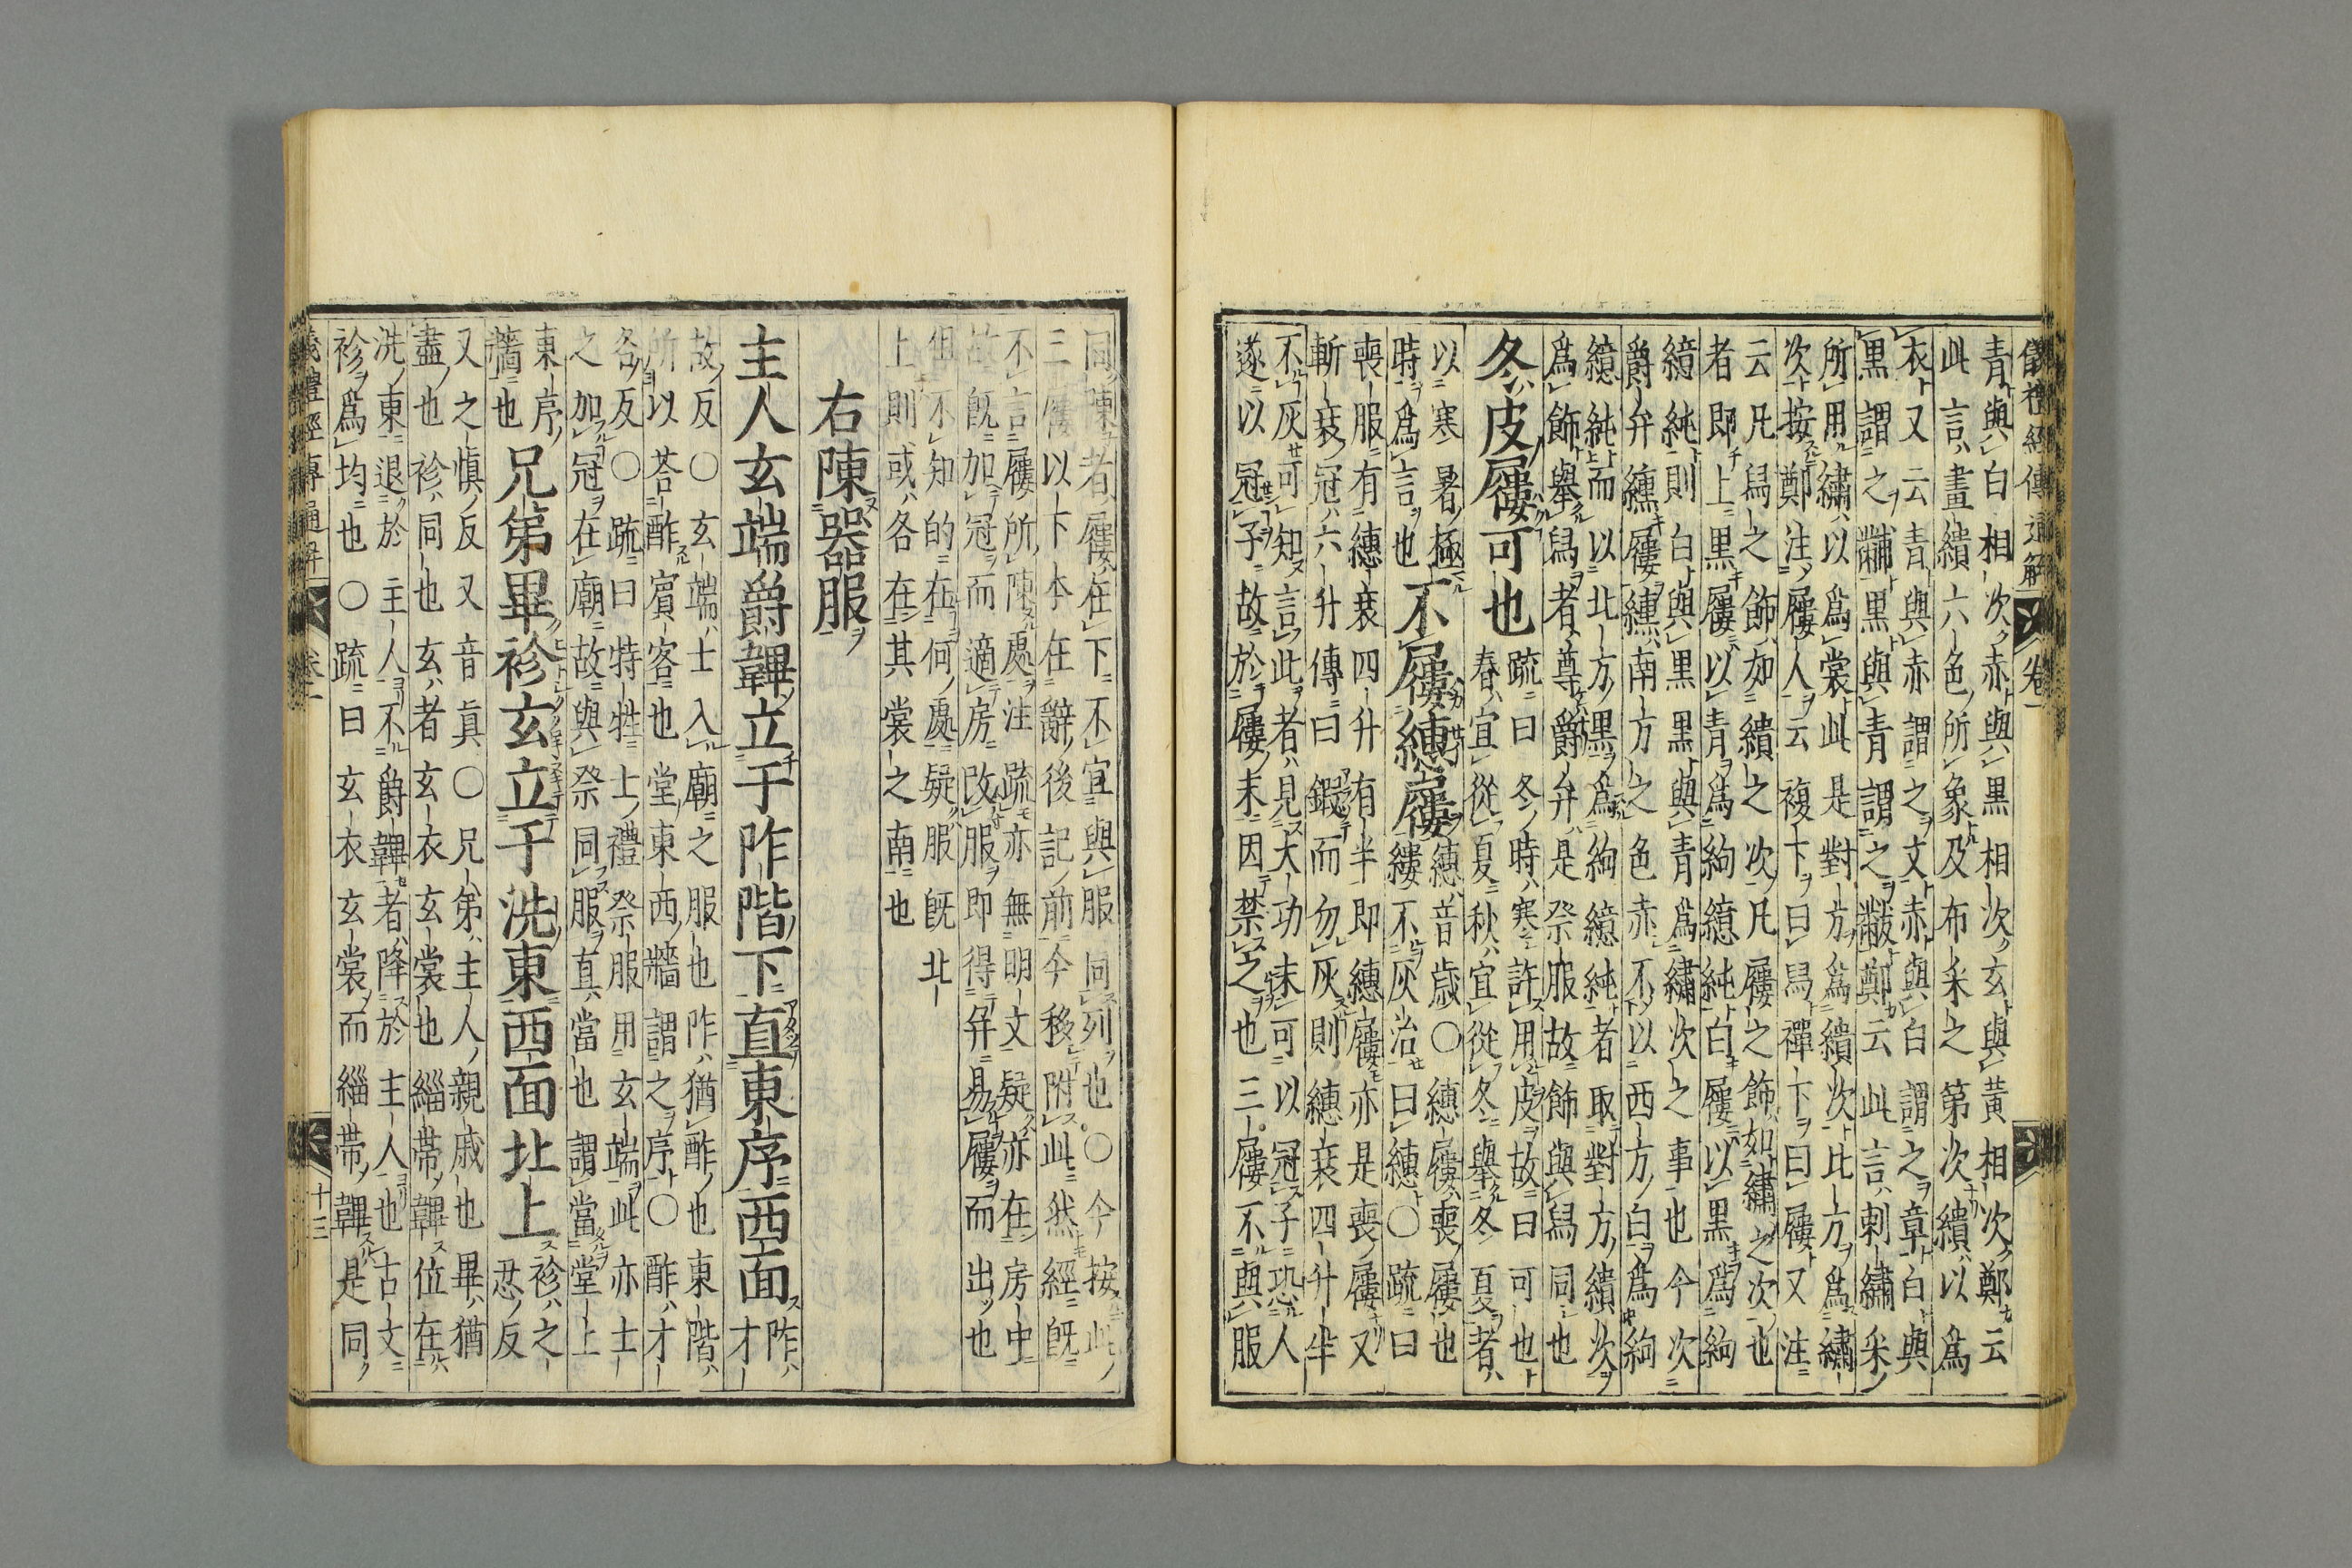 儀禮經傳通解 卷一
青與白相次赤與黑相次玄與黃相次鄭云
此言畫繢六色所象及布采之第次繢以爲
衣又云青與赤謂之文赤與白謂之章白與
黑謂之黼黑與青謂之黻鄭云此言刺繡采
所用繡以爲裳此是對方爲繢次比方爲繡
次按鄭注屨人云複下曰舄禪下曰屨又注
云凡舄之飾如繢之次凡屨之飾如繡之次也
者即上黑屨以青爲絇繶純白屨以黑爲絇
繶純則白與黑黑與青爲繡次之事也今次
爵弁纁屨纁南方之色赤不以西方白爲絇
繶純而以北方黑爲絇繶純者取對方繢次
爲飾舉舄者尊爵弁是祭服故飾與舄同也
冬皮屨可也
疏曰冬時寒許用皮故曰可也
春宜從夏秋宜從冬舉冬夏者
以寒暑極
時爲言也
不屨繐屨
繐音歲○繐屨喪屨也
縷不灰治曰繐○疏曰
喪服有繐衰四升有半即繐屨亦是喪屨又
斬衰冠六升傳曰鍛而勿灰則繐衰四升半
不灰可知言此者見大功未可以冠子恐人
遂以冠子故於屨末因禁之也三屨不與服
同陳者屨在下不宜與服同列也○今按此
三屨以下本在辭後記前今移附此然經既
不言屨所陳處注疏亦無明文疑亦在房中
故既加冠而適房改服即得幷易屨而出也
但不知的在何處疑服既北
上則或各在其裳之南也
右陳器服
主人玄端爵韠立于阼階下直東序西面
阼才
故反○玄端士入廟之服也阼猶酢也東階
所以荅酢賓客也堂東西牆謂之序○酢才
各反○疏曰特牲士禮祭服用玄端此亦士
之加冠在廟故與祭同服直當也謂當堂上
東序
牆也
兄弟畢袗玄立于洗東西面北上
袗之
忍反
又之愼反又音眞○兄弟主人親戚也畢猶
盡也袗同也玄者玄衣玄裳也緇帶韠位在
洗東退於主人不爵韠者降於主人也古文
袗爲均也○疏曰玄衣玄裳而緇帶韠是同
儀禮經傳通解 卷一 十三